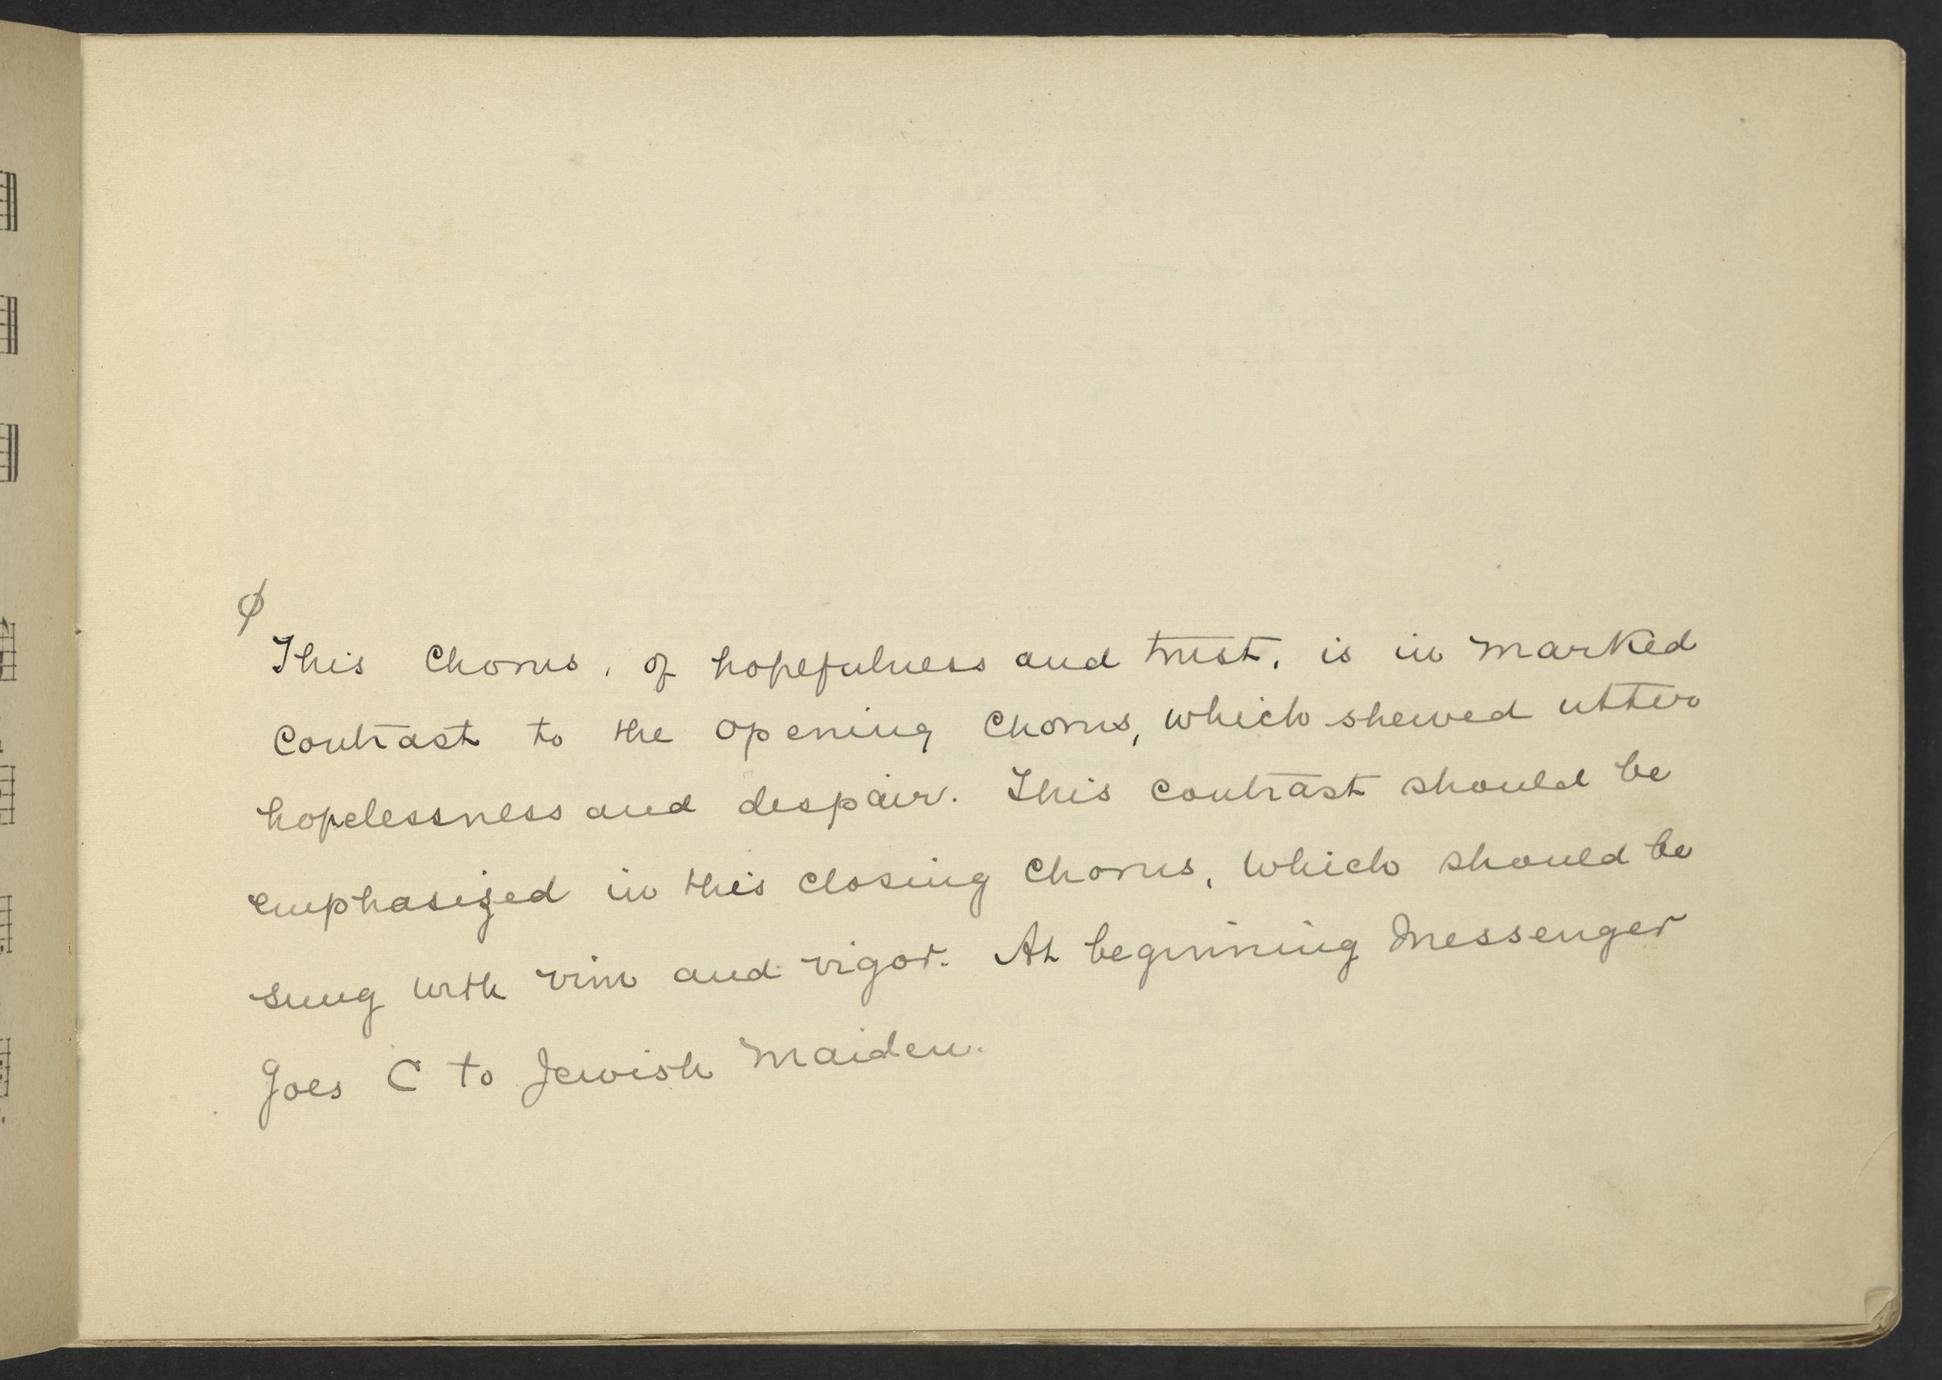 φ
This Chorus, of hopefulness and trust, is in marked
Contrast to the opening Chorus, which shewed utter
hopelessness and despair. This contrast should be
emphasized in this closing Chorus, which should be
sung with vim and vigor. At beginning Messenger
goes C to Jewish Maiden.